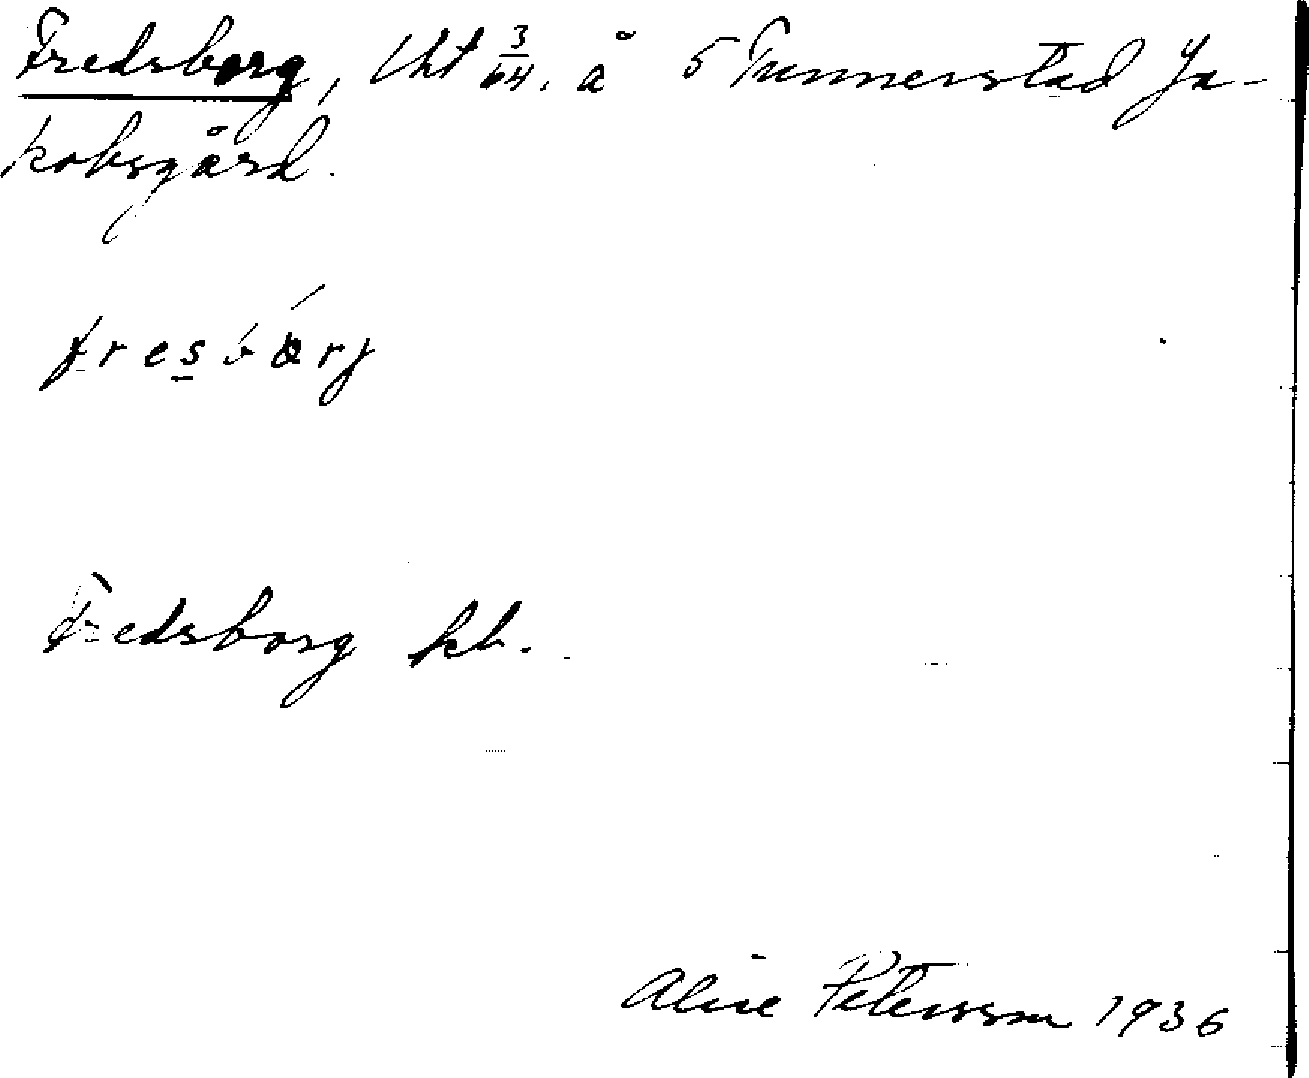 Fredsborg, lht 3/64. å 5 Tunnerstad Ja-
kobsgård.
fresbårj
Fredsborg kb.
Alice Petersson 1936